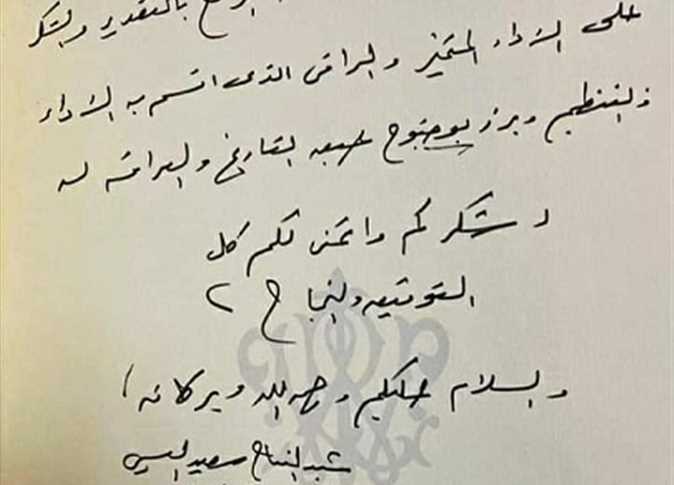 بالتقدير والشكر
على الأداء المتميز والراقى الذى اتسم به الأداء
والتنظيم وبرز بوضوح التاريخ والعراقة
أشكركم وأتمنى لكم كل
التوفيق والنجاح
والسلام عليكم ورحمة الله وبركاته
عبد الفتاح سعيد السيسي